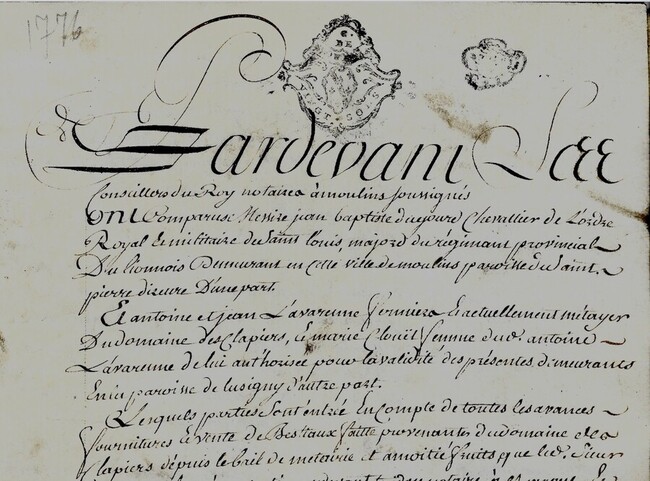 1776
G. DE
VINGT. SOLS
Pardevant Les
Conseillers du Roy notaires à moulins soussignés
ont Comparus Messire jean baptiste dugouré Chevallier de L'ordre
Royal & militaire de saint Louis, major du régimant provincial
Du lionnois Demeurant en cette ville de moulins paroisse de saint
pierre dizeure D'une part.
Et antoine et jean Lavarenne fermiers & actuellement métayer
Du domaine des Clapiers, & marie Femme dud. antoine
Lavarenne de lui authorisée pour la validité des présentes, demeurants
En la paroisse de lusigny d'autre part.
Lesquels parties sont entrée En Compte de toutes les avances
fournitures & vente de Bestiaux faitte provenants du domaine des
Clapiers depuis le bail de métoirie et amoitié fruits, que led. Sieur